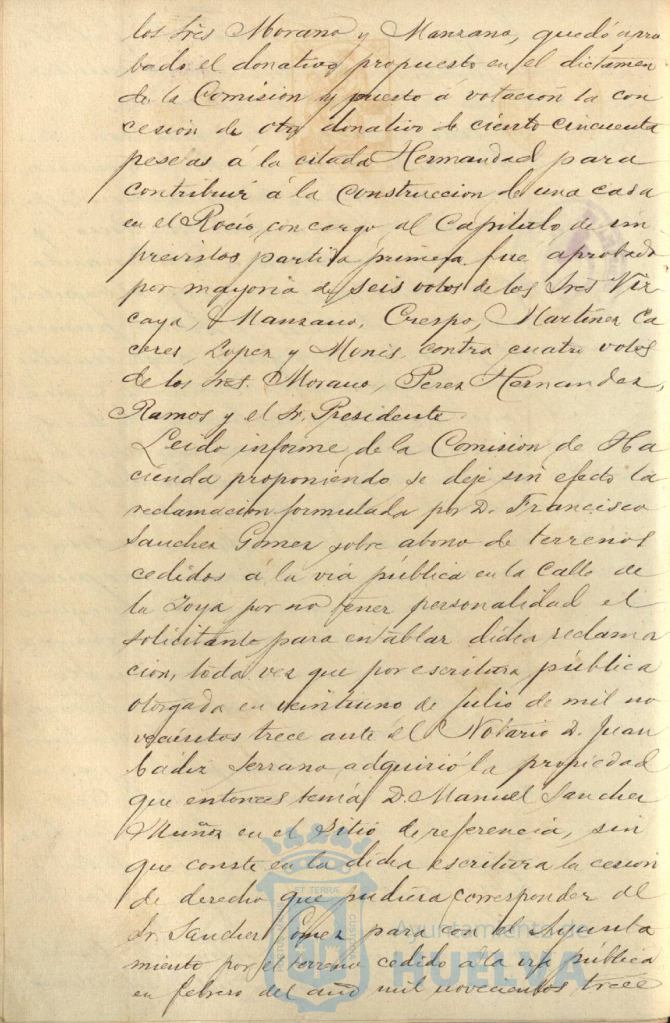 los Srés Morano y Manzano, quedó apro
bado el donativo propuesto en el dictamen
de la Comisión y puesto á votación la con
cesión de otro donativo de ciento cincuenta
pesetas á la citada Hermandad para
contribuir á la construccion de una casa
en el Rocío, con cargo al Capítulo de im
previstos partida primera fue aprobado
por mayoria de seis votos de los Srés Viz
caya, Manzano, Crespo, Martinez Ca
ceres, Lopez y Monis, contra cuatro votos
de los Srés. Morano, Perez Hernandez,
Ramos y el Sr. Presidente.
Leido informe de la Comision de Ha
cienda proponiendo se deje sin efecto la
reclamación formulada por D. Francisco
Sanchez Gomez sobre abono de terrenos
cedidos á la via pública en la Calle de
la Joya por no tener personalidad el
solicitante para entablar dicha reclama
ción, toda vez que por escritura pública
otorgada en veintiuno de Julio de mil no
vecientos trece ante el Notario D. Juan
Cadiz Serrano, adquirió la propiedad
que entonces tenía D. Manuel Sanchez
Muñoz en el Sitio de referencia, sin
que conste en la dicha escritura la cesion
de derecho que pudiera corresponder al
Sr. Sanchez Gomez para con el Ayunta
miento por el terreno cedido á la via pública
en febrero del año mil novecientos trece
Ayuntamiento de
HUELVA